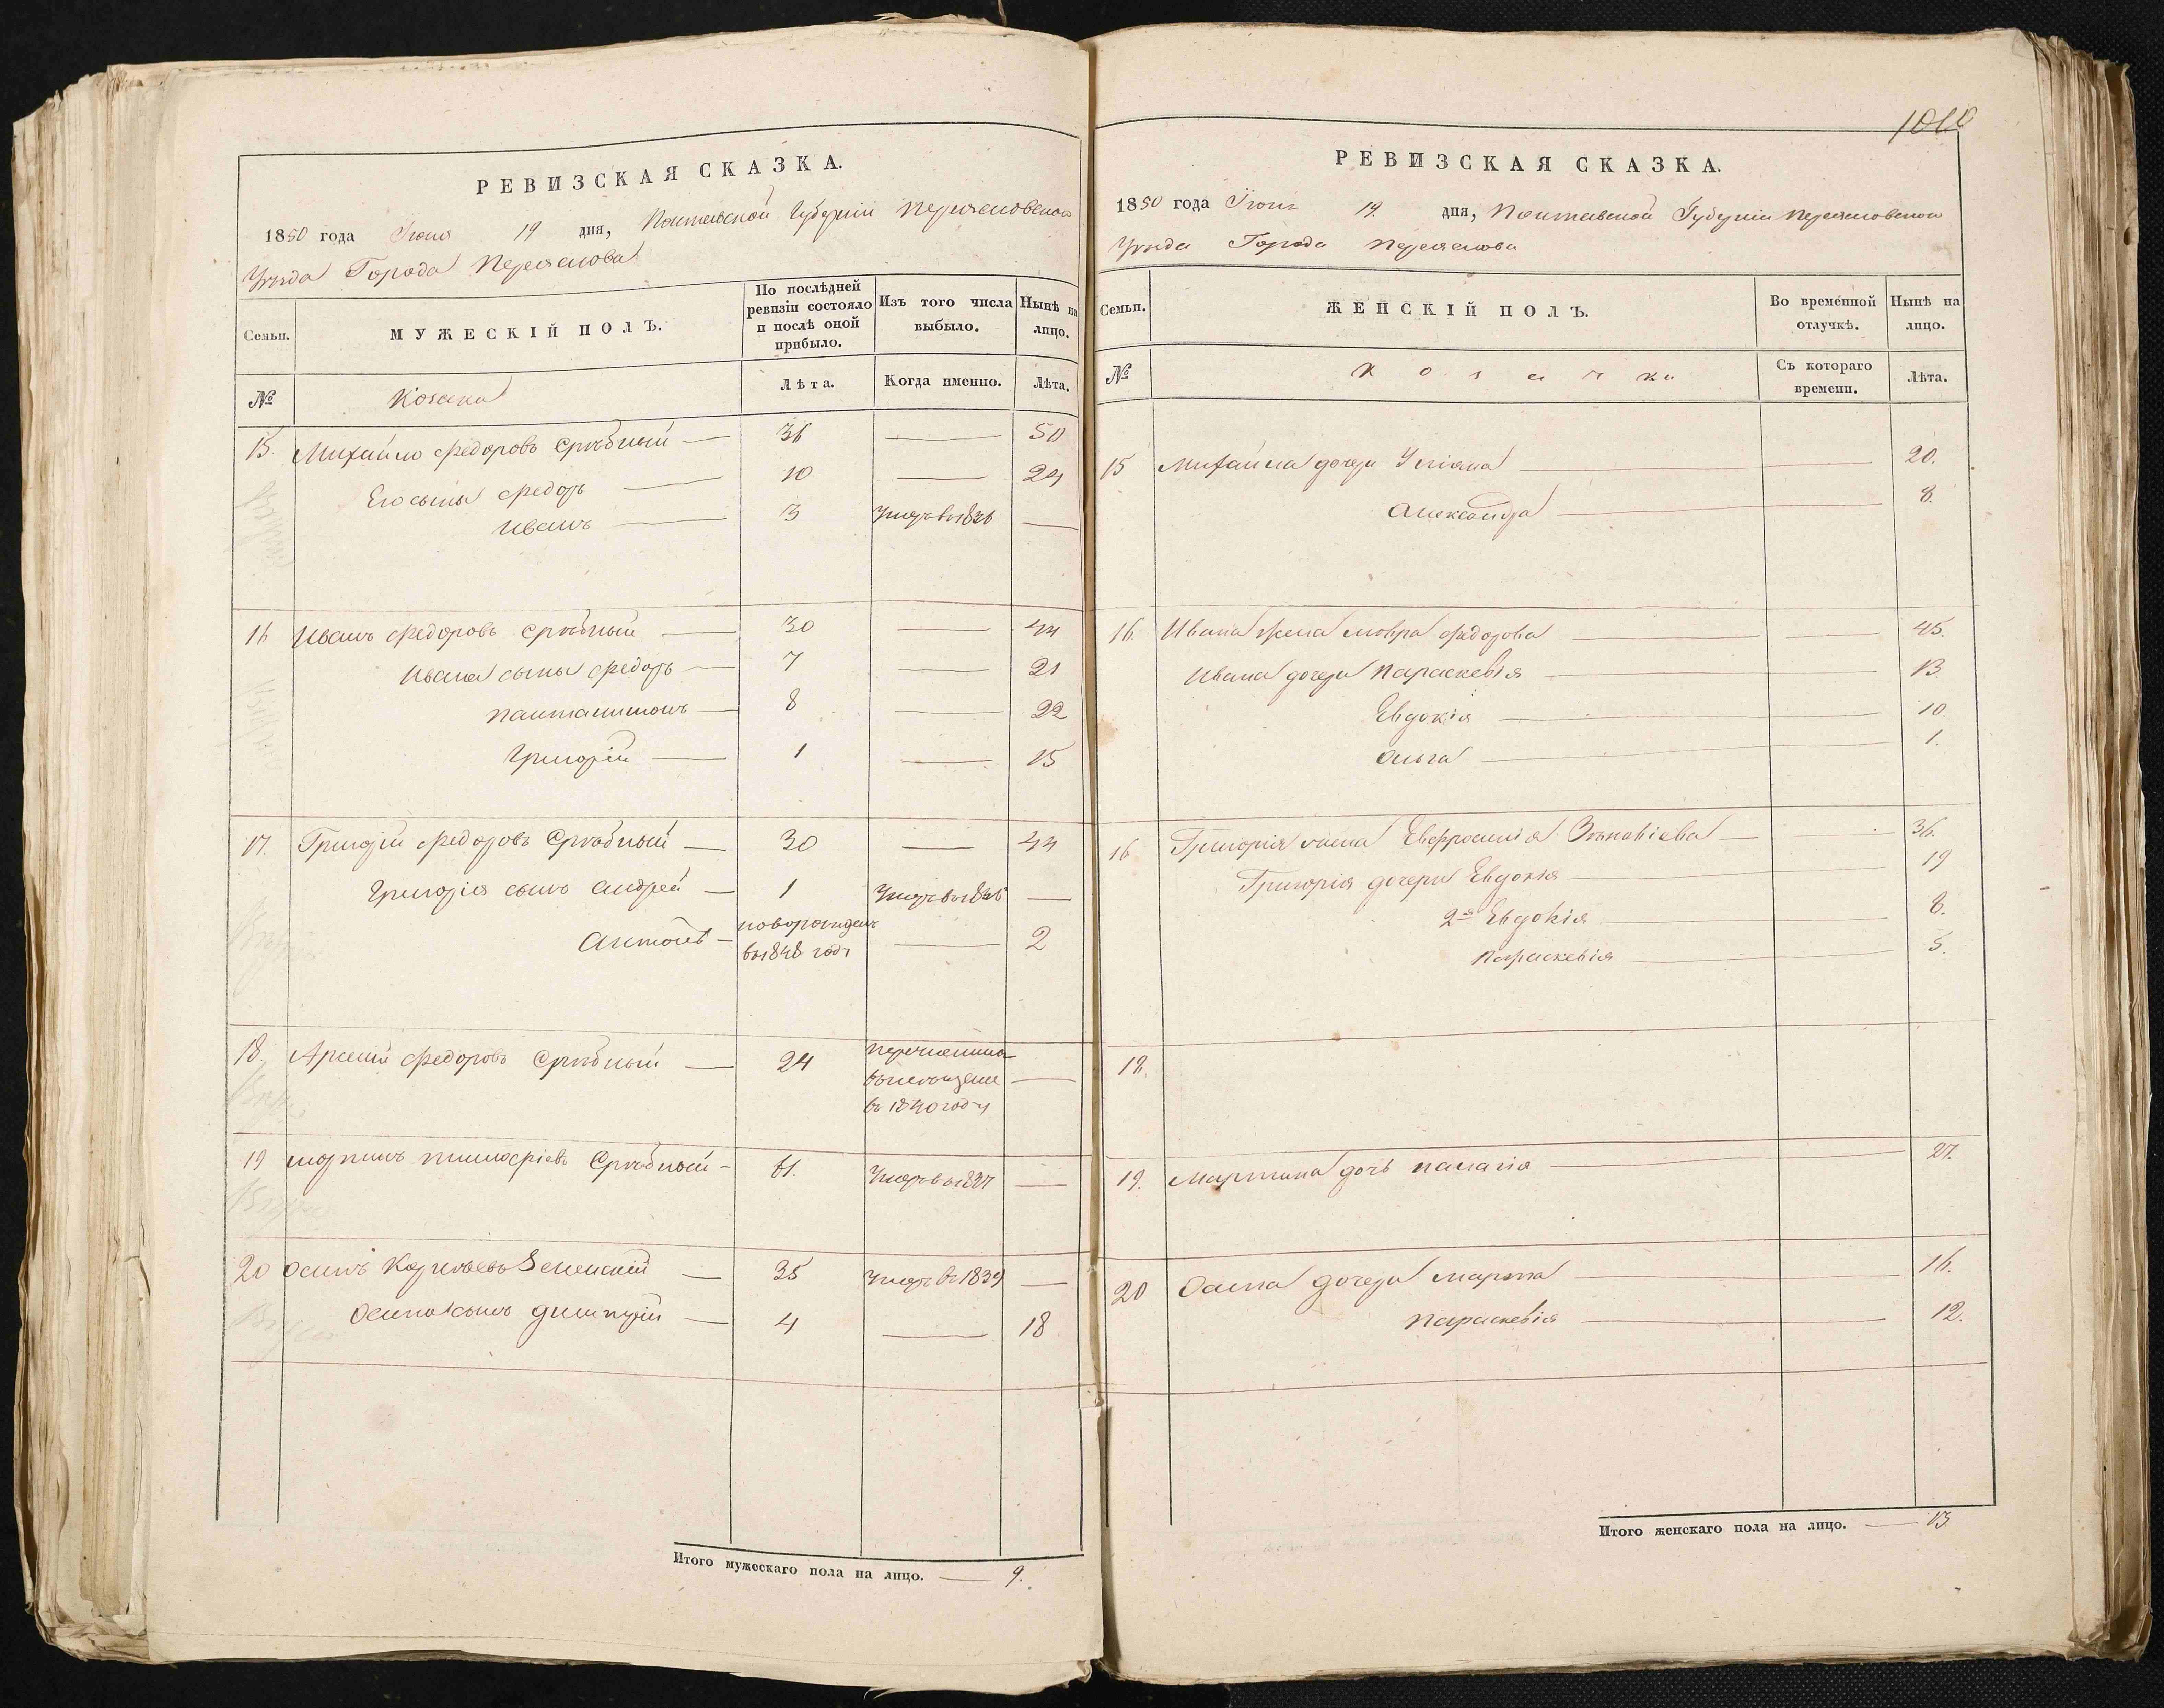 1010
РЕВИЗСКАЯ СКАЗКА.
1850 года Іюня 19 дня, Полтавской Губерніи Переясловскаго
Уѣзда Города Переяслова
Семьи.
МУЖЕСКІЙ ПОЛЪ.
По послѣдней ревизіи состояло и послѣ оной прибыло.
Изъ того числа выбыло.
Нынѣ на лицо.
№
Козаки
Лѣта.
Когда именно.
Лѣта.
15. Михайло Федоровъ Срѣбный — 36 — 50
Его сыны Федоръ — 10 — 24
Иванъ — 3 Умеръ въ 1836 —
16 Иванъ Федоровъ Срѣбный — 30 — 44
Ивана сыны Федоръ — 7 — 21
Пантелимонъ — 8 — 22
Григорій — 1 — 15
17. Григорій Федоровъ Срѣбный — 30 — 44
Григорія сынъ Андрей — 1 Умеръ въ —
Антонъ — новорожденъ въ 1848 годѣ — 2
18. Арсеній Федоровъ Срѣбный — 24 перечисленъ
въ 1840 году —
19 Мартинъ Тимофіевъ Срѣбный — 61. Умеръ въ 1837 —
20 Осипъ Корнѣевъ Зеленскій — 35 Умеръ въ 1839 —
Осипа сынъ Дмитрій — 4 — 18
Итого мужескаго пола на лицо. — 9.
РЕВИЗСКАЯ СКАЗКА.
1850 года Іюня 19. дня, Полтавской Губерніи Переясловскаго
Уѣзда Города Переяслова
Семьи.
ЖЕНСКІЙ ПОЛЪ.
Во временной отлучкѣ.
Нынѣ на лицо.
№
Козачки
Съ котораго времени.
Лѣта.
15 Михайла дочери Уліяна — — 20.
Александра — — 8.
16. Ивана жена Мавра Федорова — — 45.
Ивана дочери Параскевія — — 13.
Евдокія — — 10.
Ольга — 1.
16 Григорія жена Евфросинія Зѣновіева — — 36.
Григорія дочери Евдокія — 19
2я Евдокія — 8.
Параскевія — 5.
18.
19. Мартина дочь Палагія — 27.
20 Осипа дочери Марфа — 16.
Параскевія — 12.
Итого женскаго пола на лицо. — 13